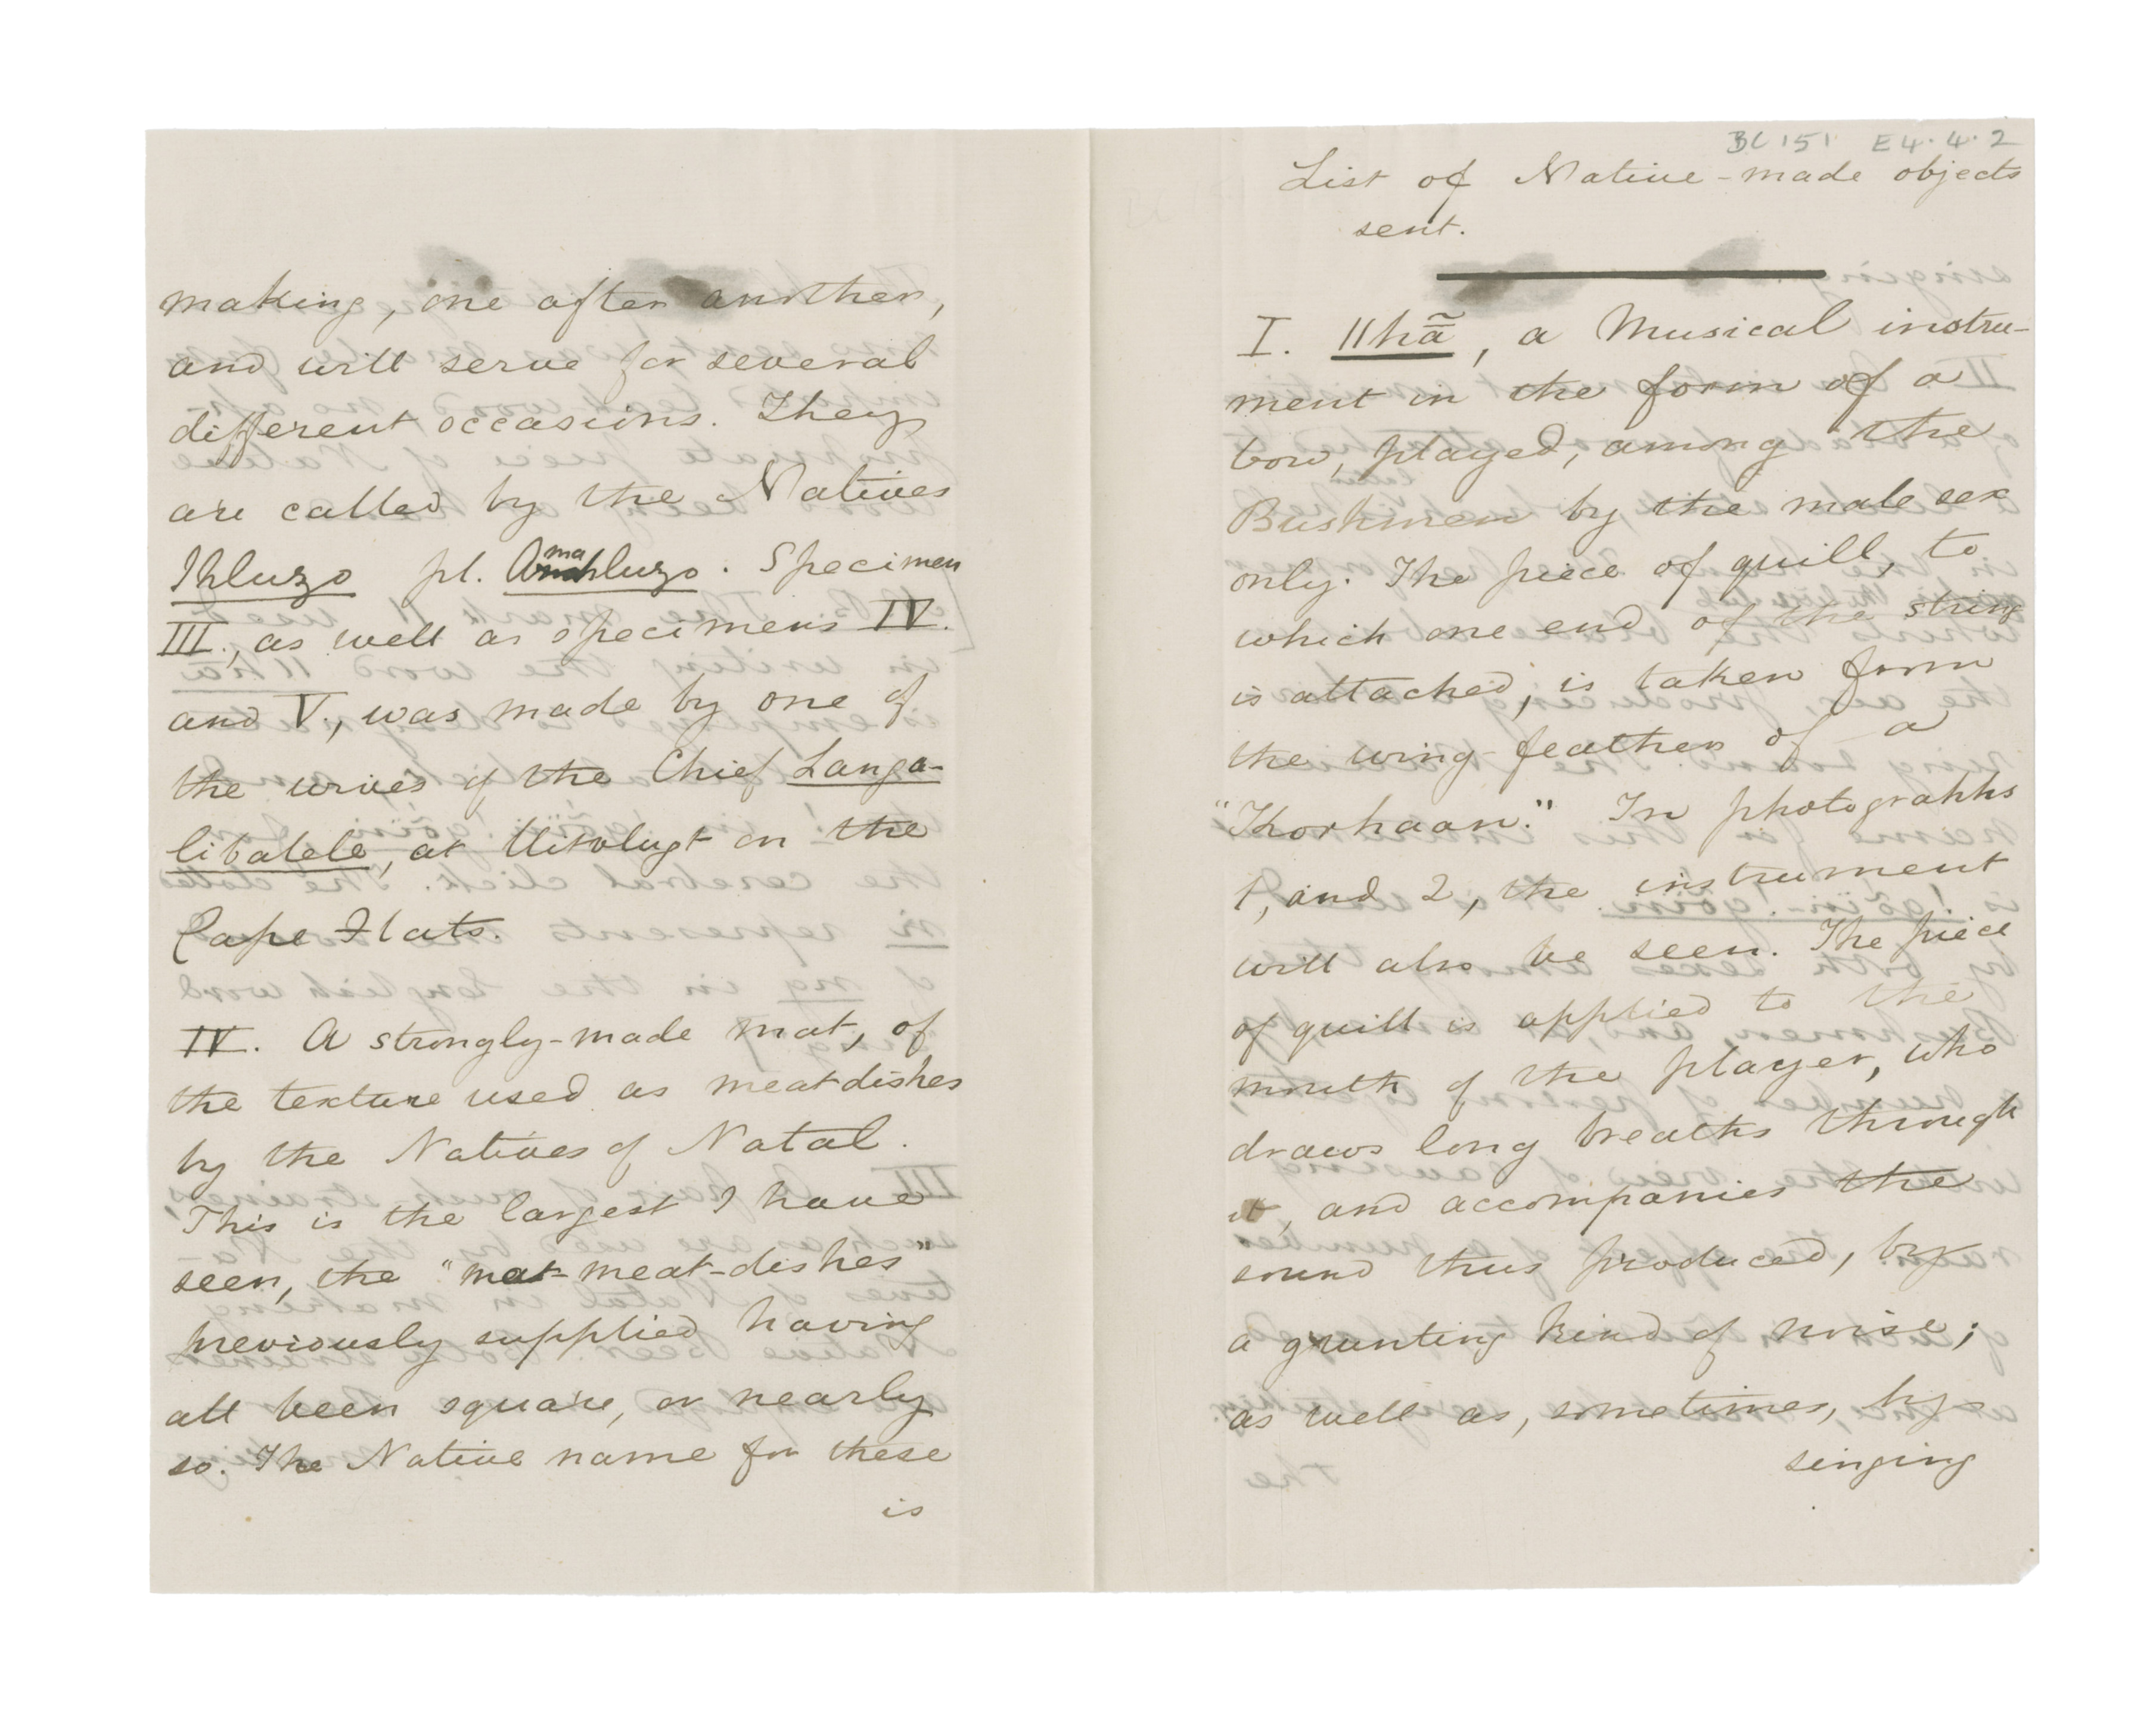 making, one after another,
and will serve for several
different occasions. They
are called by the Natives
Ihluzo pl. Amahluzo. Specimen
III., as well as specimens IV.
and V., was made by one of
the wives of the Chief Langa-
libalele, at Uitvlugt on the
Cape Flats.
IV. A strongly-made mat, of
the texture used as meat dishes
by the Natives of Natal.
This is the largest I have
seen, the "mat-meat-dishes"
previously supplied having
all been square, or nearly
so. The Native name for these
is
BC 151 E4.4.2
List of Native-made objects
sent.
I. ||hā̃, a Musical instru-
ment in the form of a
bow, played, among the
Bushmen by the male sex
only. The piece of quill, to
which one end of the string
is attached, is taken form
the wing-feather of a
"Korhaan." In photographs
1, and 2, the instrument
will also be seen. The piece
of quill is applied to the
mouth of the player, who
draws long breaths through
it, and accompanies the
sound thus produced, by
a grunting kind of noise;
as well as, sometimes, by
singing